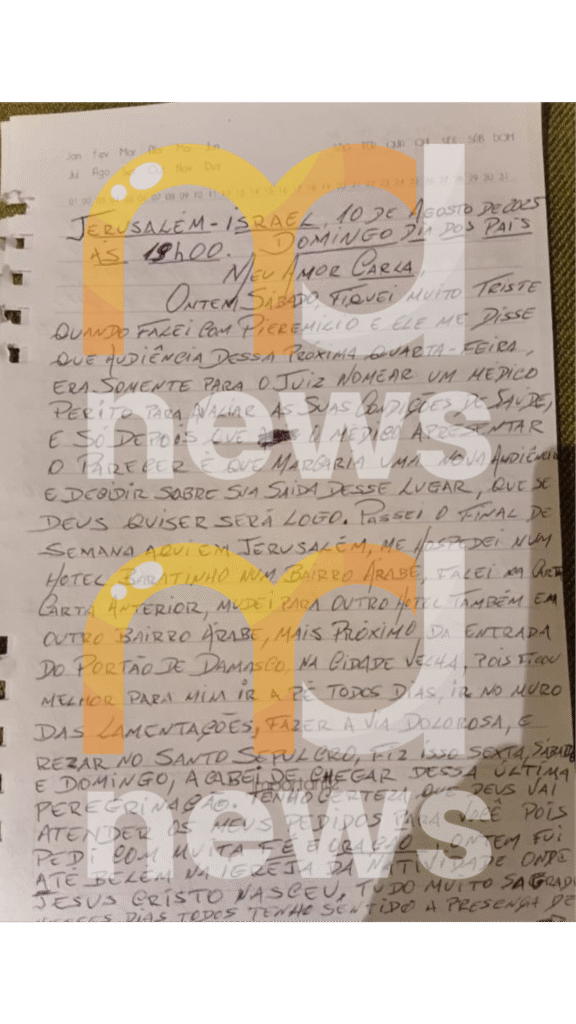 Jan Fev Mar Abr Mai Jun
Jul Ago Set Out Nov Dez
SEG TER QUA QUI SEX SÁB DOM
JERUSALÉM - ISRAEL, 10 DE AGOSTO DE 2025
ÀS 19h00. DOMINGO DIA DOS PAIS
MEU AMOR CARLA,
ONTEM, SÁBADO, FIQUEI MUITO TRISTE
QUANDO FALEI COM PIEREMILIO E ELE ME DISSE
QUE AUDIÊNCIA DESSA PRÓXIMA QUARTA-FEIRA,
ERA SOMENTE PARA O JUIZ NOMEAR UM MEDICO
PERITO PARA AVALIAR AS SUAS CONDIÇÕES DE SAÚDE,
E SÓ DEPOIS QUE O MEDICO APRESENTAR
O PARECER É QUE MARCARIA UMA NOVA AUDIÊNCIA
E DECIDIR SOBRE SUA SAÍDA DESSE LUGAR, QUE SE
DEUS QUISER SERÁ LOGO. PASSEI O FINAL DE
SEMANA AQUI EM JERUSALÉM, ME HOSPEDEI NUM
HOTEL BARATINHO NUM BAIRRO ÁRABE, FALEI NA
CARTA ANTERIOR, MUDEI PARA OUTRO HOTEL TAMBÉM EM
OUTRO BAIRRO ÁRABE, MAIS PRÓXIMO DA ENTRADA
DO PORTÃO DE DAMASCO, NA CIDADE VELHA, POIS FICOU
MELHOR PARA MIM IR A PÉ TODOS DIAS, IR NO MURO
DAS LAMENTAÇÕES, FAZER A VIA DOLOROSA, E
REZAR NO SANTO SEPULCRO, FIZ ISSO SEXTA, SÁBADO
E DOMINGO, ACABEI DE CHEGAR DESSA ÚLTIMA
Importante
PEREGRINAÇÃO. TENHO CERTEZA QUE DEUS VAI
ATENDER OS MEUS PEDIDOS PARA VOCÊ POIS
PEDI COM MUITA FÉ E ORAÇÃO. ONTEM FUI
ATÉ BELÉM NA IGREJA DA NATIVIDADE ONDE
JESUS CRISTO NASCEU, TUDO MUITO SAGRADO
NESSES DIAS TODOS TENHO SENTIDO A PRESENÇA DE
nd
news
nd
news